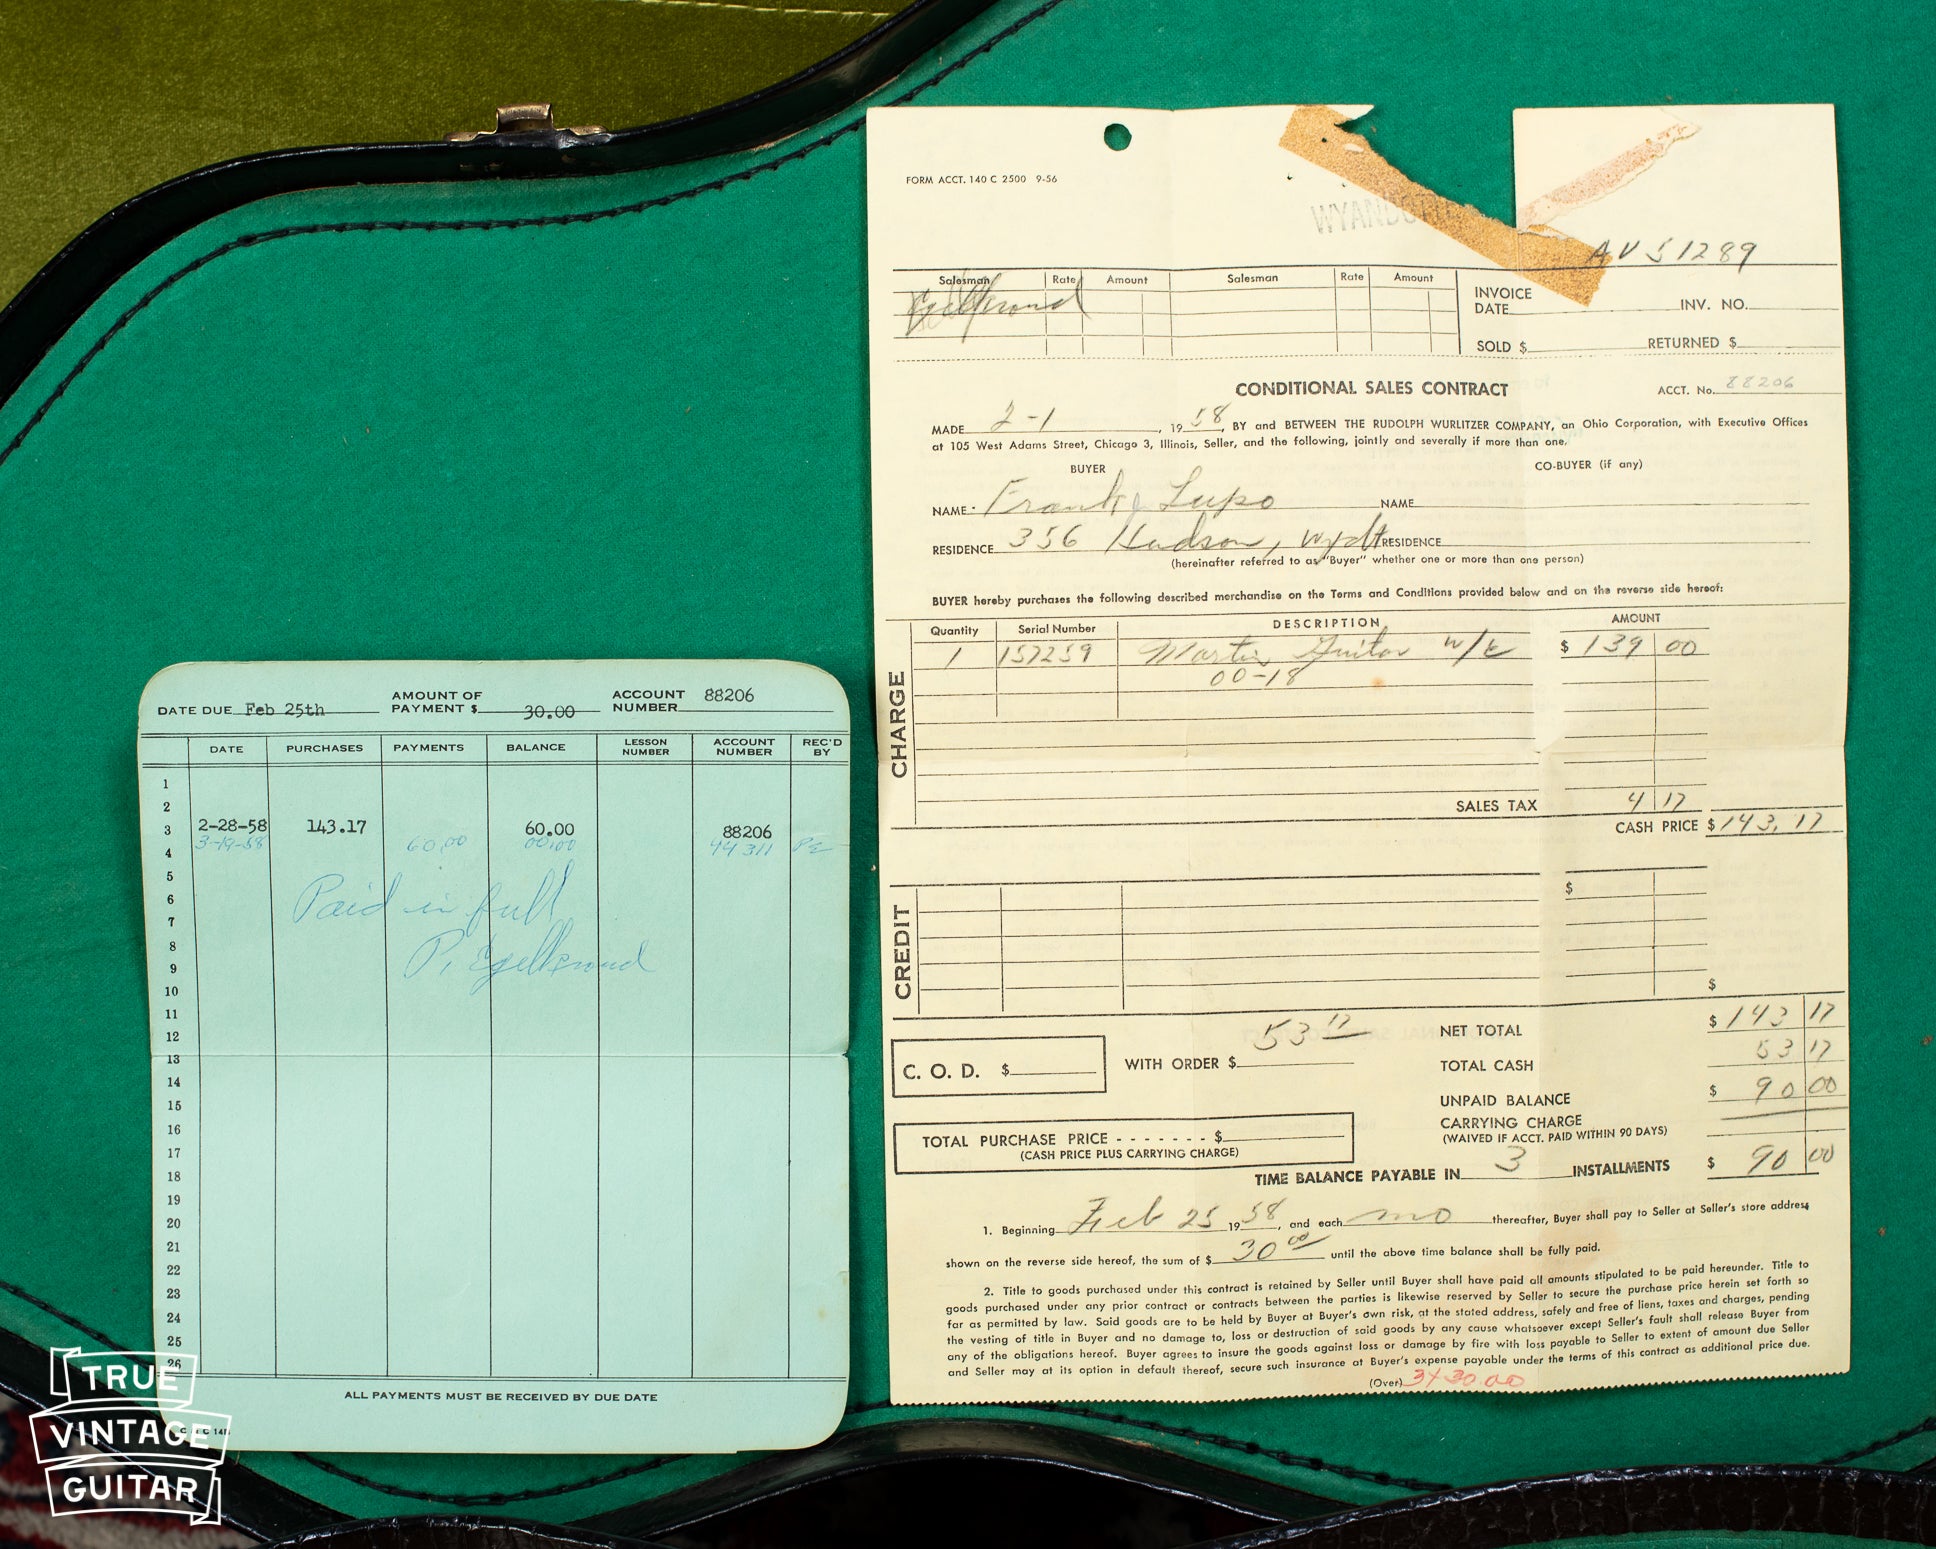 DATE DUE Feb 25th AMOUNT OF PAYMENT $ 30.00 ACCOUNT NUMBER 88206
DATE PURCHASES PAYMENTS BALANCE LESSON NUMBER ACCOUNT NUMBER REC'D BY
1
2
3 2-28-58 143.17 60.00 88206
4 3-19-58 60.00 00.00 44311 PE
5
6 Paid in full
7
8 P. Egelkroud
9
10
11
12
13
14
15
16
17
18
19
20
21
22
23
24
25
26
ALL PAYMENTS MUST BE RECEIVED BY DUE DATE
TRUE
VINTAGE
GUITAR
FORM ACCT. 140 C 2500 9-56
AV 51289
Salesman Rate Amount Salesman Rate Amount
INVOICE DATE INV. NO.
SOLD $ RETURNED $
CONDITIONAL SALES CONTRACT ACCT. No. 88206
MADE 2-1, 1958, BY and BETWEEN THE RUDOLPH WURLITZER COMPANY, an Ohio Corporation, with Executive Offices
at 105 West Adams Street, Chicago 3, Illinois, Seller, and the following, jointly and severally if more than one,
BUYER CO-BUYER (if any)
NAME Frank Lupo NAME
RESIDENCE 356 Hudson, Wydt RESIDENCE
(hereinafter referred to as "Buyer" whether one or more than one person)
BUYER hereby purchases the following described merchandise on the Terms and Conditions provided below and on the reverse side hereof:
CHARGE
Quantity Serial Number DESCRIPTION AMOUNT
1 157259 Martin Guitar w/c $ 139 00
00-18
SALES TAX 4 17
CASH PRICE $ 143.17
CREDIT
$
$
C. O. D. $ WITH ORDER $ 53 17
NET TOTAL $ 143 17
TOTAL CASH 53 17
UNPAID BALANCE $ 90 00
CARRYING CHARGE
(WAIVED IF ACCT. PAID WITHIN 90 DAYS)
TOTAL PURCHASE PRICE - - - - - - - $
(CASH PRICE PLUS CARRYING CHARGE)
TIME BALANCE PAYABLE IN 3 INSTALLMENTS $ 90 00
1. Beginning Feb 25 1958, and each mo thereafter, Buyer shall pay to Seller at Seller's store address
shown on the reverse side hereof, the sum of $ 30 00 until the above time balance shall be fully paid.
2. Title to goods purchased under this contract is retained by Seller until Buyer shall have paid all amounts stipulated to be paid hereunder. Title to
goods purchased under any prior contract or contracts between the parties is likewise reserved by Seller to secure the purchase price herein set forth so
far as permitted by law. Said goods are to be held by Buyer at Buyer's own risk, at the stated address, safely and free of liens, taxes and charges, pending
the vesting of title in Buyer and no damage to, loss or destruction of said goods by any cause whatsoever except Seller's fault shall release Buyer from
any of the obligations hereof. Buyer agrees to insure the goods against loss or damage by fire with loss payable to Seller to extent of amount due Seller
and Seller may at its option in default thereof, secure such insurance at Buyer's expense payable under the terms of this contract as additional price due.
(Over) 3x30.00